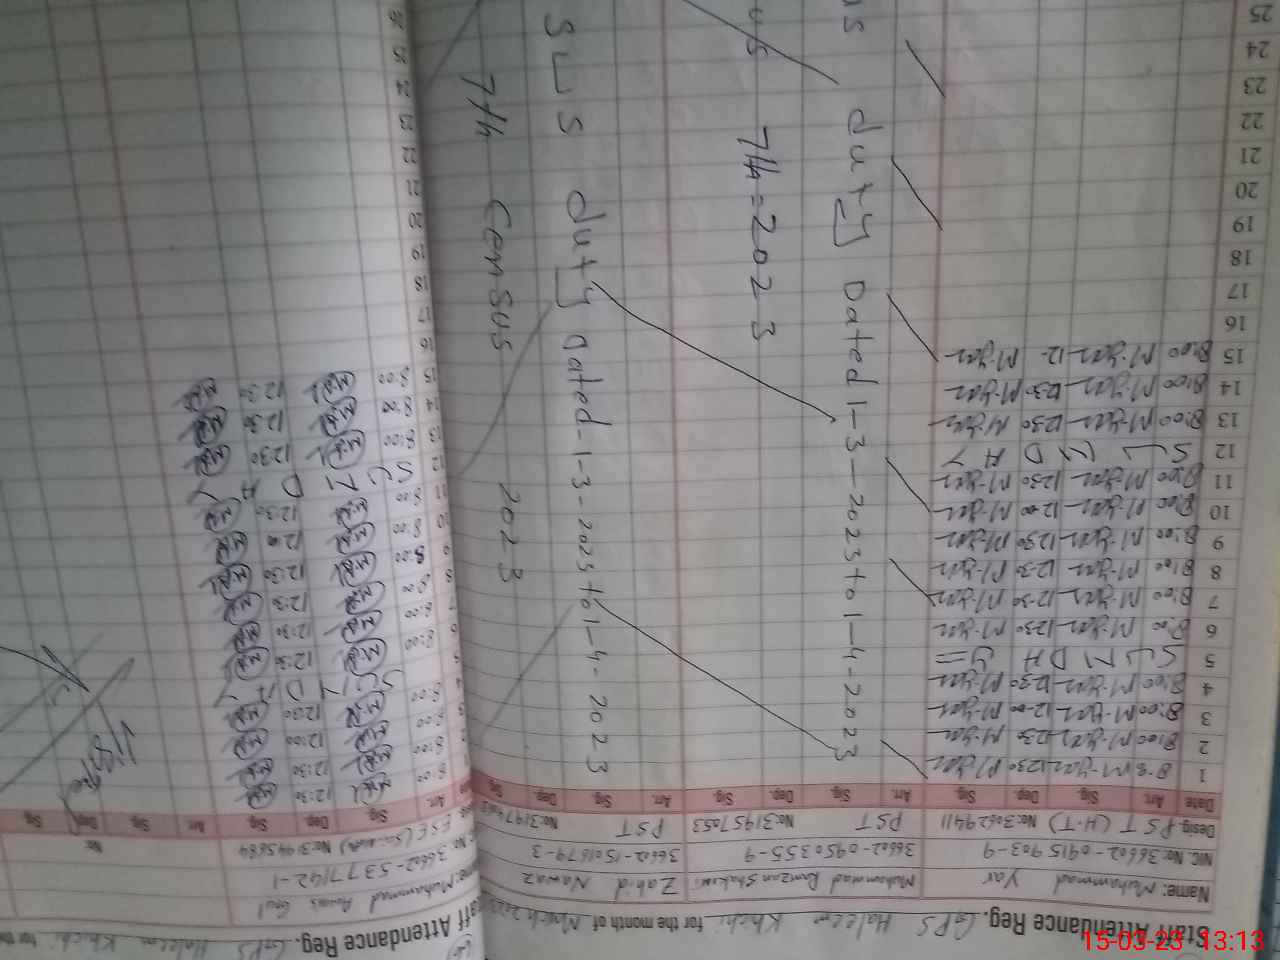 Staff Attendance Reg. GPS Haleem Khichi for the month of March 2023
Name: Muhammad Yar
Muhammad Ramzan Shakir
Zahid Nawaz
NIC. No: 36602-0915903-9
36602-0950355-9
36602-1501679-3
Desig: PST (H.T) No: 30629411
PST No: 31957053
PST
Date Arr. Sig. Dep. Sig. Arr. Sig. Dep. Sig. Arr. Sig. Dep. Sig.
1 M-Yar 12:30 M-Yar
2 8:00 M-Yar 12:30 M-Yar
3 8:00 M-Yar 12:00 M-Yar
4 8:00 M-Yar 12:30 M-Yar
5 S U N D A Y
6 8:00 M-Yar 12:30 M-Yar
7 8:00 M-Yar 12:30 M-Yar
8 8:00 M-Yar 12:30 M-Yar
9 8:00 M-Yar 12:30 M-Yar
10 8:00 M-Yar 12:00 M-Yar
11 8:00 M-Yar 12:30 M-Yar
12 S U N D A Y
13 8:00 M-Yar 12:30 M-Yar
14 8:00 M-Yar 12:30 M-Yar
15 8:00 M-Yar 12- M-Yar
16
17
18
19
20
21
22
23
24
25
us duty Dated 1-3-2023 to 1-4-2023
us 7th = 2023
SUS duty Dated-1-3-2023 to 1-4-2023
7th Census 2023
Staff Attendance Reg. GPS Haleem Khichi for the
Name: Muhammad Gul
36602-5377142-1
ESE No: 31945684
Arr. Sig. Dep. Sig. Arr. Sig. Dep. Sig.
8:00 12:30
8:00 12:30
8:00 12:00
8:00 12:30
S U N D A Y
8:00 12:30
8:00 12:30
8:00 12:30
8:00 12:30
8:00 12:00
8:00 12:30
S U N D A Y
8:00 12:30
8:00 12:30
8:00 12:30
16
17
18
19
20
21
22
23
24
25
26
15-03-23 13:13